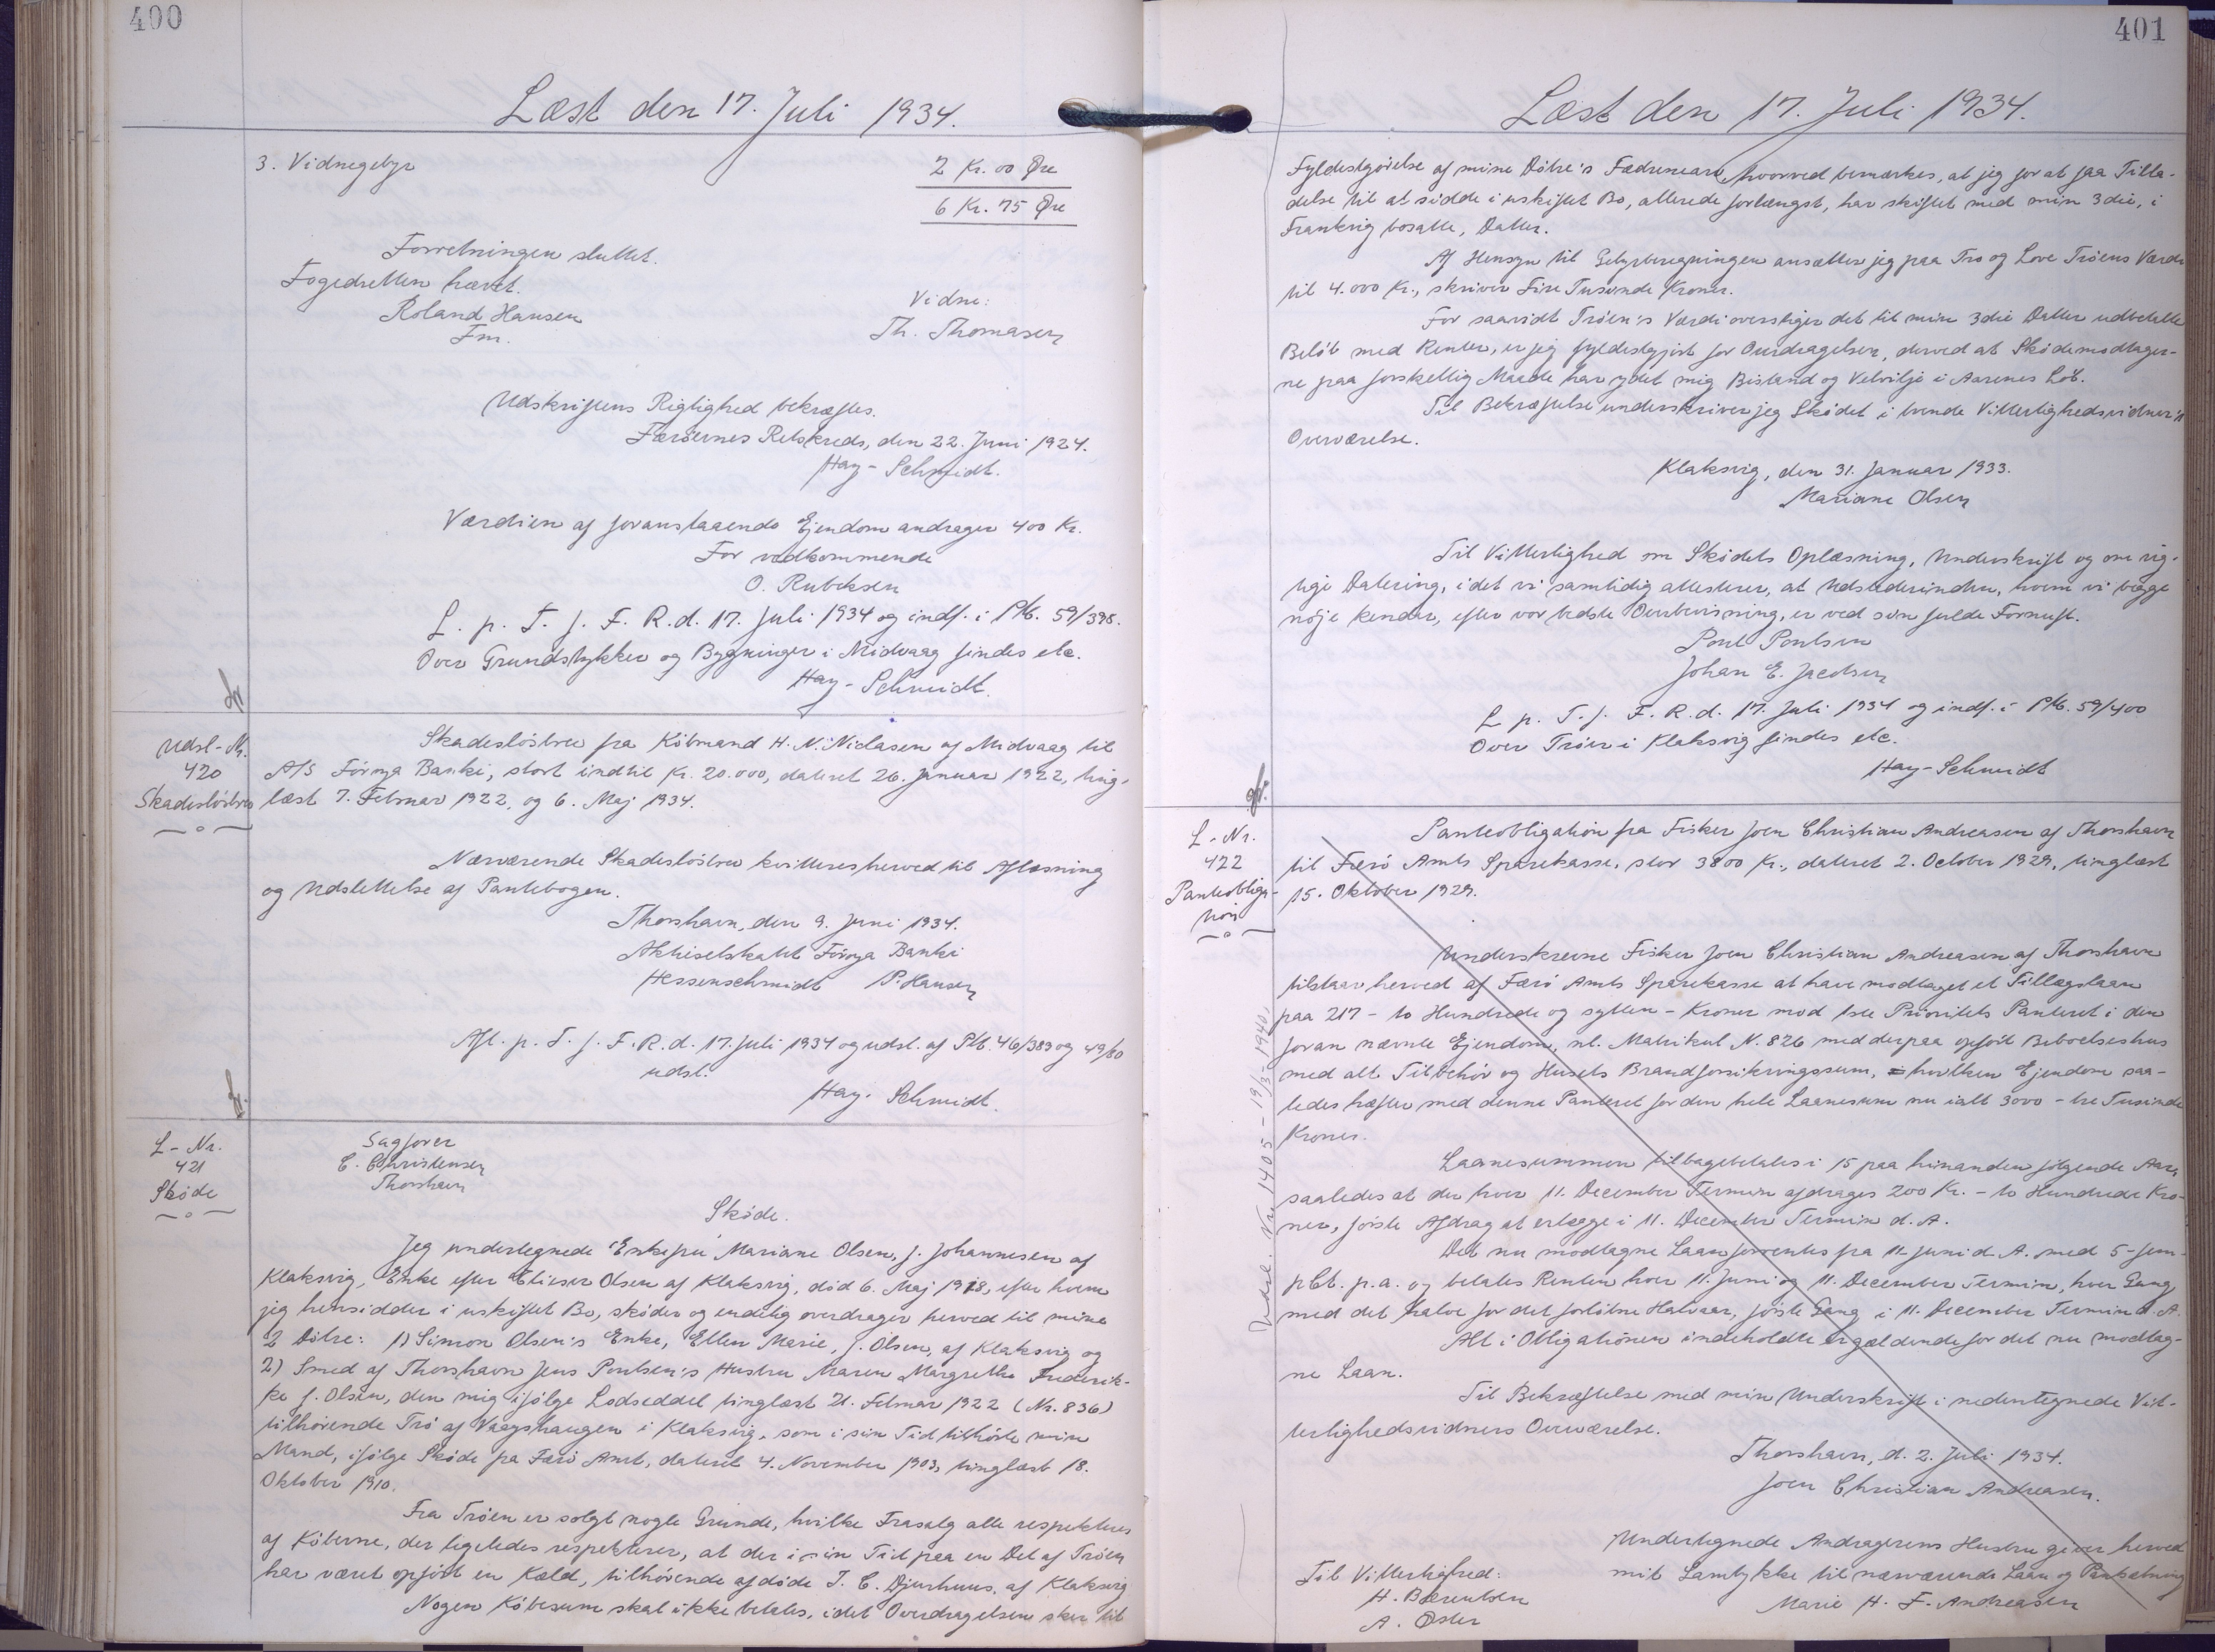 400
Læst den 17. Juli 1934.
3. Vidnegebyr 2 Kr. 00 Øre
6 Kr. 75 Øre
Forretningen sluttet.
Fogedretten hævet.
Roland Hansen
Fm.
Vidne:
Th. Thomasen
Udskriftens Rigtighed bekræftes.
Færöernes Retskreds, den 22. Juni 1924.
Hay-Schmidt.
Værdien af foranstaaende Ejendom andrager 400 Kr.
For vedkommende
O. Rubeksen
L. p. T. f. F. R. d. 17. Juli 1934 og indf. i Ptb. 59/398.
Over Grundstykker og Bygninger i Midvaag findes etc.
Hay-Schmidt.
Udsl-Nr.
420
Skadeslösbrev
Skadeslösbrev fra Köbmand H. N. Niclasen af Midvaag til
A/S Föroya Banki, stort indtil Kr. 20.000, dateret 26. Januar 1922, ting-
læst 7. Februar 1922, og 6. Maj 1934.
Nærværende Skadeslösbrev kvitteres herved til Aflæsning
og Udslettelse af Pantebogen.
Thorshavn, den 9. Juni 1934.
Aktieselskabet Föroya Banki
Hessenschmidt P. Hansen
Afl. p. T. f. F. R. d. 17. Juli 1934 og udsl. af Ptb. 46/383 og 49/80
udsl.
Hay-Schmidt.
L-Nr.
421
Sköde
Sagförer
C. Christensen
Thorshavn
Sköde.
Jeg undertegnede Enkefru Mariane Olsen, f. Johannesen af
Klaksvig, Enke efter Elieser Olsen af Klaksvig, död 6. Maj 1918, efter hvem
jeg hensidder i uskiftet Bo, sköder og endelig overdrager herved til mine
2 Dötre: 1) Simon Olsen's Enke, Ellen Marie, f. Olsen, af Klaksvig og
2) Smed af Thorshavn Jens Poulsen's Hustru Maren Margrethe Frederik-
ke f. Olsen, den mig ifölge Lodseddel tinglæst 21. Februar 1922 (Nr. 836)
tilhörende Trö af Vaagshaugen i Klaksvig, som i sin Tid tilhörte min
Mand, ifölge Sköde fra Færö Amt, dateret 4. November 1903, tinglæst 18.
Oktober 1910.
Fra Tröen er solgt nogle Grunde, hvilke Frasalg alle respekteres
af Köberne, der ligeledes respekterer, at der i sin Tid paa en Del af Tröen
har været opfört en Kald, tilhörende afdöde J. C. Djurhuus, af Klaksvig
Nogen Köbesum skal ikke betales, idet Overdragelsen sker til
401
Læst den 17. Juli 1934.
Fyldestgörelse af mine Dötre's Fædrenearv, hvorved bemærkes, at jeg for at faa Tilla-
delse til at sidde i uskiftet Bo, allerede forlængst, har skiftet med min 3die, i
Frankrig bosatte, Datter.
Af Hensyn til Gebyrberegningen ansætter jeg paa Tro og Love Tröens Værdi
til 4.000 Kr., skriver Fire Tusinde Kroner.
For saavidt Tröen's Værdi overstiger det til min 3die Datter udbetalte
Belöb med Renter, er jeg fyldestgjort for Overdragelsen, derved at Sködemodtager-
ne paa forskellig Maade har ydet mig Bistand og Velvilje i Aarenes Löb.
Til Bekræftelse underskriver jeg Sködet i tvende Vitterlighedsvidner's
Overværelse.
Klaksvig, den 31. Januar 1933.
Mariane Olsen
Til Vitterlighed om Sködets Oplæsning, Underskrift og om rig-
tige Datering, idet vi samtidig attesterer, at Udstederinden, hvem vi begge
nöje kender, efter vor bedste Overbevisning, er ved sin fulde Fornuft.
Poul Poulsen
Johan E. Jacobsen
L. p. T. f. F. R. d. 17. Juli 1934 og indf. i Ptb. 59/400
Over Tröer i Klaksvig findes etc.
Hay-Schmidt
L-Nr.
422
Panteobliga-
tion
Udsl. Nr. 1405 - 19/3-1940.
Panteobligation fra Fisker Joen Christian Andreasen af Thorshavn
til Færö Amts Sparekasse, stor 3800 Kr., dateret 2. October 1929, tinglæst
15. Oktober 1929.
Underskrevne Fisker Joen Christian Andreasen af Thorshavn
tilstaar herved af Færö Amts Sparekasse at have modtaget et Tillægslaan
paa 217 - to Hundrede og sytten - Kroner mod 1ste Prioritets Panteret i den
foran nævnte Ejendom, nl. Matrikul N. 826 med derpaa opfört Beboelseshus
med alt Tilbehör og Husets Brandforsikringssum, hvilken Ejendom saa-
ledes hæfter med denne Panteret for den hele Laanesum nu ialt 3000 - tre Tusinde
Kroner.
Laanesummen tilbagebetales i 15 paa hinanden fölgende Aar,
saaledes at der hver 11. December Termin afdrages 200 Kr. - to Hundrede Kro-
ner, förste Afdrag at erlægge i 11. December Termin d. A.
Det nu modtagne Laan forrentes fra 11. Juni d. A. med 5 - fem -
pCt. p. a. og betales Renten hver 11. Juni og 11. December Termin, hver Gang
med det halve for det forlöbne Halvaar, förste Gang i 11. December Termin d. A.
Alt i Obligationen indeholdte er gældende for det nu modtag-
ne Laan.
Til Bekræftelse med min Underskrift i nedentegnede Vit-
terlighedsvidners Overværelse.
Thorshavn, d. 2. Juli 1934.
Joen Christian Andreasen.
Undertegnede Andragerens Hustru giver herved
mit Samtykke til nærværende Laan og Pantsætning
Marie H. F. Andreasen
Til Vitterlighed:
H. Bærentsen
A. Öster